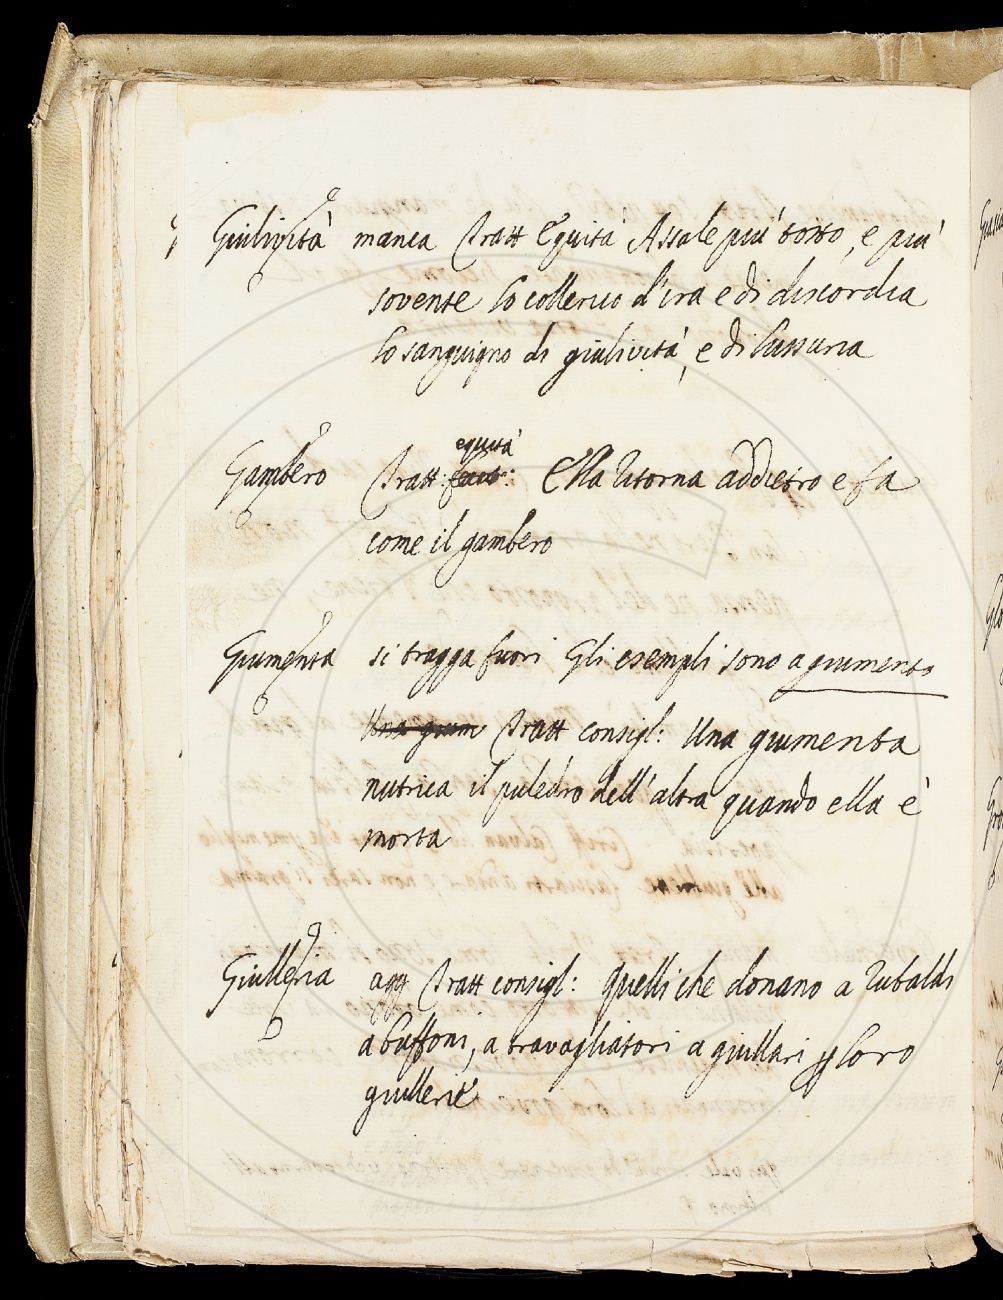 Giulività manca Tratt Equità Assale più tosto, e più
sovente lo collerico d'ira e di discordia
lo sanguigno di giulività, e di lussuria
Gambero Tratt: equità Ella ritorna addietro e fa
come il gambero
Giumenta si tragga fuori Gli esempli sono a giumento
Una gium Tratt consigl: Una giumenta
nutrica il puledro dell'altra quando ella è
morta
Giulleria agg Tratt consigl: Quelli che donano a rubaldi
a buffoni, a travagliatori a giullari loro
giullerie